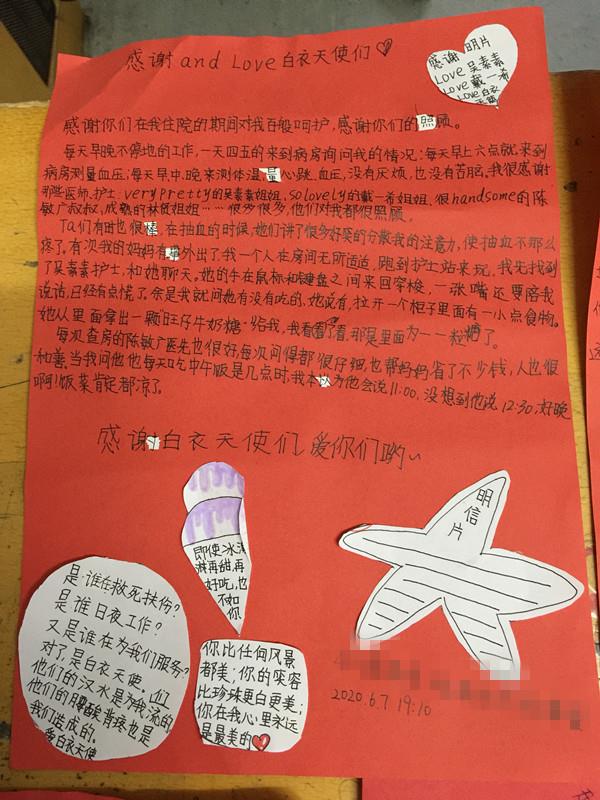 感谢 and Love 白衣天使们
感谢 明片
Love 吴素素
Love 戴一希
Love 白衣
天使
感谢你们在我住院的期间对我百般呵护，感谢你们的照顾。
每天早晚不停地的工作，一天四五的来到病房询问我的情况；每天早上六点就来到
病房测量血压；每天早中晚来测体温量心跳、血压，没有厌烦，也没有苦恼。我很感谢
那些医师、护士：very pretty的吴素素姐姐，so lovely的戴一希姐姐，很handsome的陈
敏广叔叔，成熟的林質姐姐……很多很多，他们对我都很照顾。
Ta们有时也很 在抽血的时候，她们讲了很多好笑的分散我的注意力，使抽血不那么
疼了。有次我的妈妈有事外出了，我一个人在房间无所适道，跑到护士站来玩，我先找到
了吴素素护士，和她聊天。她的手在鼠标和键盘之间来回穿梭，一张嘴还要陪我
说话，已经有点慌了。余是我就问她有没有吃的，她没有，拉开一个柜子里面有一小点食物。
她从里面拿出一颗旺仔牛奶糖给我，我看了看，那是里面为一一粒糖了。
每次查房的陈敏广医先也很好，每次问得都很仔细，也帮妈妈省了不少钱，人也很
和善，当我问他他每天吃中午饭是几点时，我本以为他会说11:00，没想到他说12:30，好晚
啊！饭菜肯定都凉了。
感谢白衣天使们，爱你们哟~
即使冰淇
淋再甜，再
好吃，也
不如
你
明信片
是谁在救死扶伤？
是谁日夜工作？
又是谁在为我们服务？
对了，是白衣天使，
他们的汗水是为我流的
他们的腰酸背疼也是
我们造成的。
爱白衣天使
你比任何风景
都美；你的笑容
比珍珠更白更美；
你在我心里永远
是最美的
2020.6.7 19:10